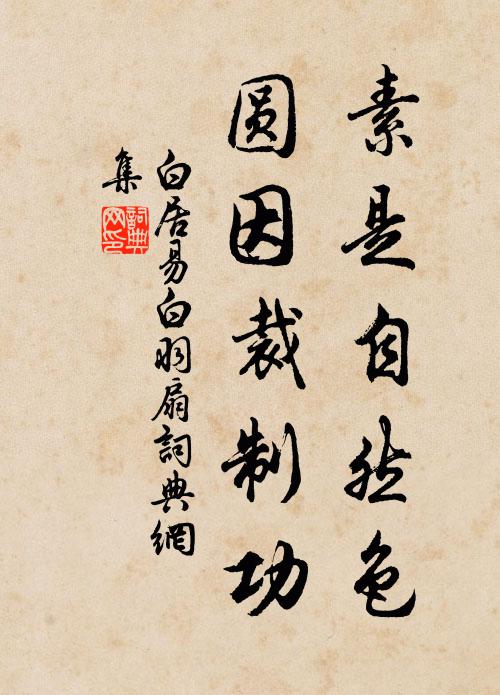 素是自然色
圆因裁制功
白居易白羽扇詞典網
集
詞典
网印